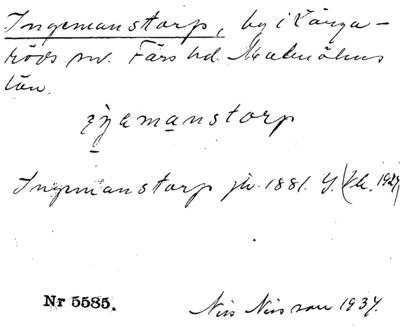 Ingemanstorp, by i Kärra-
röds sn. Färs hd. Malmöhus
län.
Ingemanstorp jb. 1881.
Nr 5585.
Nils Nilsson 1937.